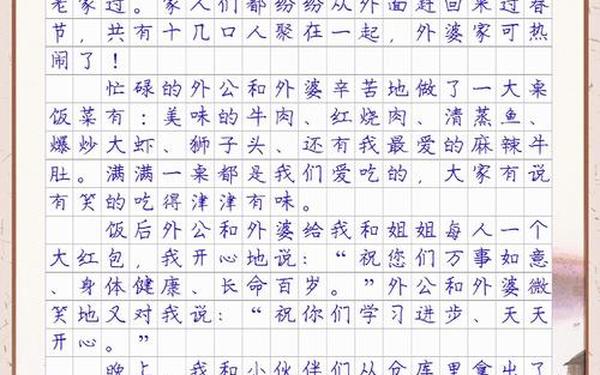 老家过。家人们都纷纷从外面赶回来过春
节，共有十几口人聚在一起，外婆家可热
闹了！
忙碌的外公和外婆辛苦地做了一大桌
饭菜有：美味的牛肉、红烧肉、清蒸鱼、
爆炒大虾、狮子头、还有我最爱的麻辣牛
肚。满满一桌都是我们爱吃的，大家有说
有笑的吃得津津有味。
饭后外公和外婆给我和姐姐每人一个
大红包，我开心地说：“祝您们万事如意
、身体健康、长命百岁。”外公和外婆微
笑地又对我说：“祝你们学习进步、天天
开心。”
晚上，我和小伙伴们从仓库里拿出了